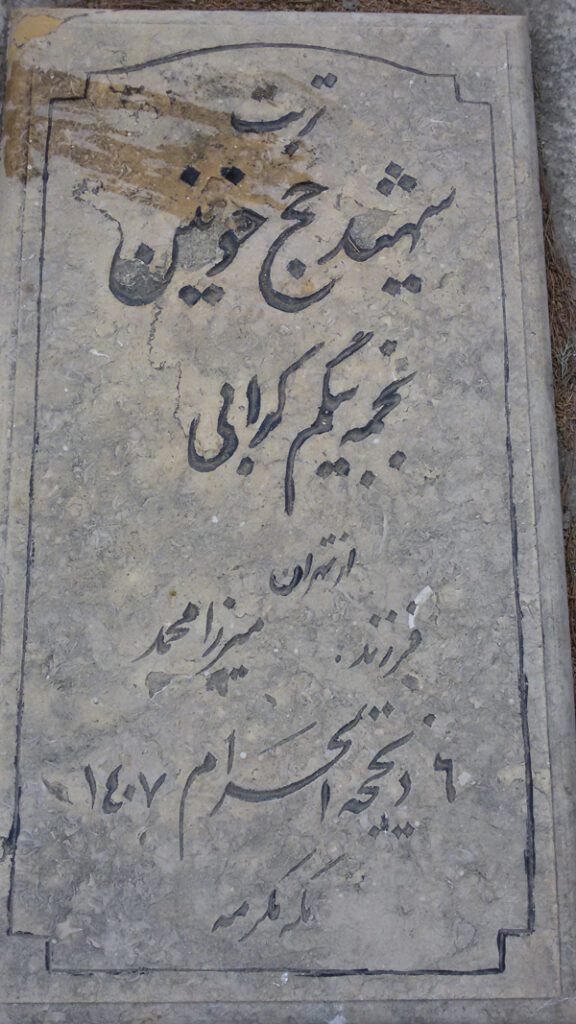 تربت
شهید حج خونین
نجمه بیگم کرابی
از تهران
فرزند: میرزا محمد
۶ ذیحجه الحرام ۱٤۰۷
مکه مکرمه